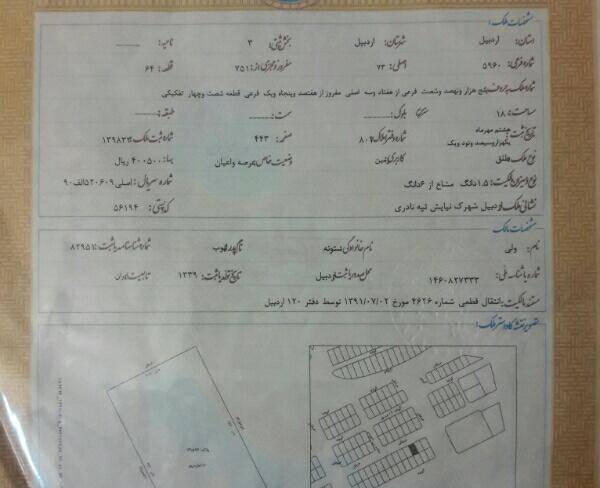 مشخصات ملک:
استان: اردبیل شهرستان: اردبیل بخش ثبتی: ۳ ناحیه:
شماره فرعی: ۵۹۶۰ اصلی: ۷۳ مفروز و مجزی از: ۷۵۱ قطعه: ۶۴
شماره ملک به حروف: پنج هزار و نهصد و شصت فرعی از هفتاد و سه اصلی مفروز از هفتصد و پنجاه و یک فرعی قطعه شصت و چهار تفکیکی
مساحت: ۱۸۰ بلوک: سمت: طبقه:
تاریخ ثبت: هشتم مهرماه یکهزار و سیصد و نود و یک شماره دفتر املاک: ۸۰۷ صفحه: ۴۴۳ شماره ثبت ملک:
نوع ملک: طلق کاربری: زمین وضعیت خاص: عرصه و اعیان بها: ۴۰۰۵۰۰ ریال
نوع و میزان مالکیت: ۱.۵ دانگ مشاع از ۶ دانگ شماره سریال:
نشانی ملک: اردبیل شهرک نیایش تپه نادری کد پستی: ۵۶۱۹۴
مشخصات مالک:
نام: ولی نام خانوادگی: نام پدر: شماره شناسنامه یا ثبت: ۸۲۹۵۱
شماره یا شناسه ملی: ۱۴۶۰۸۲۷۳۳۳ محل صدور یا ثبت: اردبیل تاریخ تولد یا ثبت: ۱۳۳۹ تابعیت: ایران
مستند مالکیت: با انتقال قطعی شماره ۴۶۲۶ مورخ ۱۳۹۱/۰۷/۰۲ توسط دفتر ۱۲۰ اردبیل
تصویر نقشه کاداستر ملک: